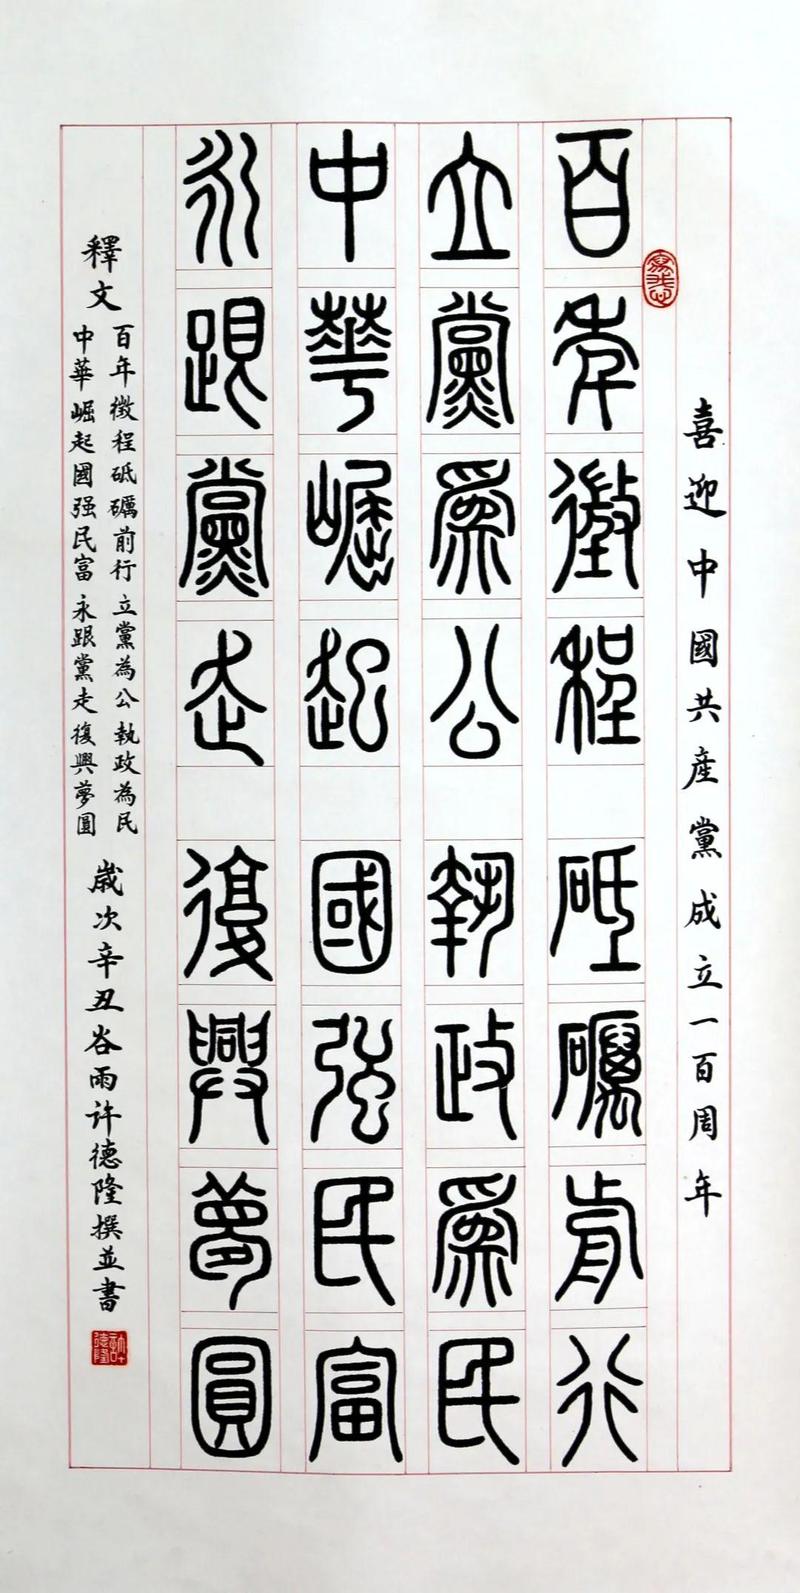 喜迎中國共產黨成立一百周年
百年徵程砥礪前行
立黨為公執政為民
中華崛起國强民富
永跟黨走復興夢圓
釋文
百年徵程砥礪前行立黨為公執政為民
中華崛起國强民富永跟黨走復興夢圓
歲次辛丑谷雨许德隆撰並書